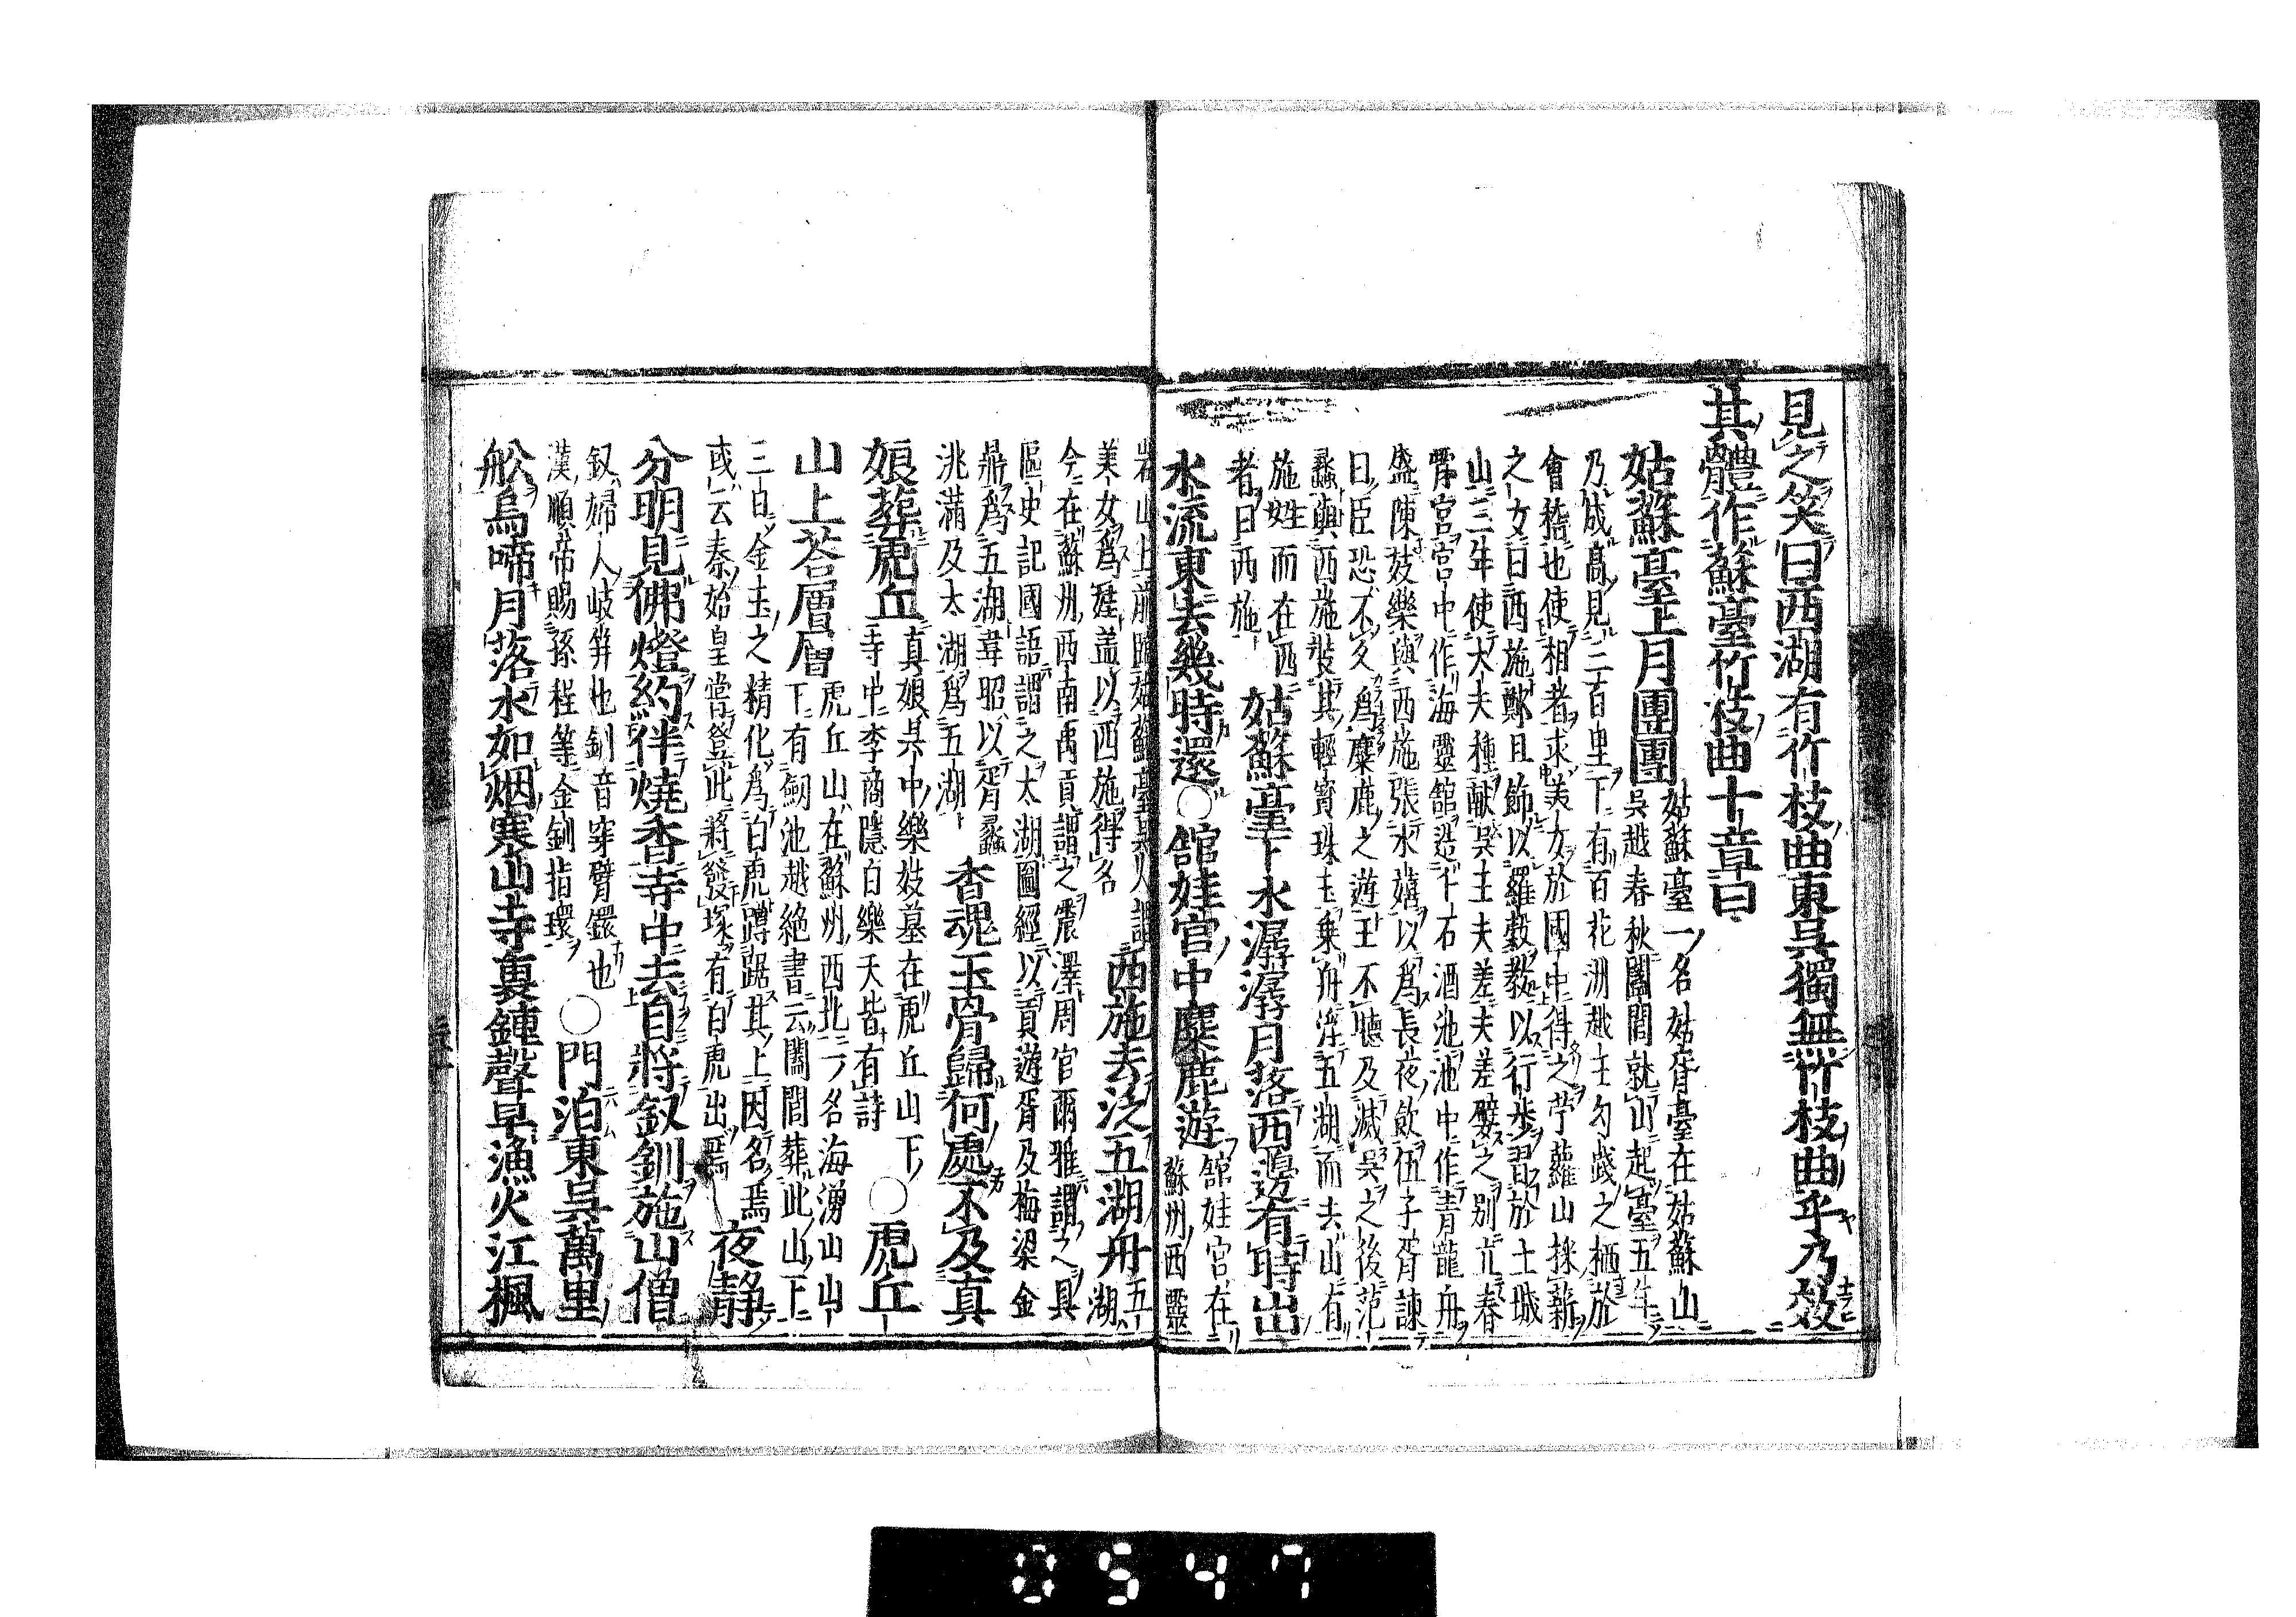 見之笑曰西湖有竹枝曲東吳獨無竹枝曲乎乃效
其體作蘇臺竹枝曲十章曰
姑蘇臺上月團團
姑蘇臺一名姑胥臺在姑蘇山
吳越春秋闔閭就山起臺五年
乃成高見三百里下有百花洲越王勾踐之栖於
會稽也使相者求美女於國中得之苧蘿山採薪
之女曰西施鄭旦飾以羅縠教以行步習於土城
山三年使大夫種献吳王夫差夫差嬖之別立春
宵宮宮中作海靈館造千石酒池池中作青龍舟
盛陳妓樂與西施張水嬉以為長夜飲伍子胥諫
曰臣恐不久為麋鹿之遊王不聽及滅吳之後范
蠡與西施裝其輕寶珠玉乗舟浮五湖而去山有
施姓而在西
者曰西施
姑蘇臺下水潺潺月落西邊有時出
水流東去幾時還○館娃宮中麋鹿遊
館娃宮在
蘇州西靈
岩山上前臨姑蘇臺吳人謂
美女為娃盖以西施得名
西施去泛五湖舟
五湖
今在蘇州西南禹貢謂之震澤周官爾雅謂之具
區史記國語謂之太湖圖經以貢遊胥及梅梁金
鼎為五湖韋昭以胥蠡
洮滿及太湖為五湖
香魂玉骨歸何處不及真
娘葬虎丘
真娘吳中樂妓墓在虎丘山下
寺中李商隱白樂天皆有詩
○虎丘
山上荅層層
虎丘山在蘇州西北一名海湧山山
下有劒池越絶書云闔閭葬此山下
三日金玉之精化為白虎蹲踞其上因名焉
或云秦始皇嘗登此將發塚有白虎出焉
夜靜
分明見佛燈約伴燒香寺中去自將釵釧施山僧
釵婦人岐筓也釧音穿臂鐶也
漢順帝賜孫程等金釧指環
○門泊東吳萬里
舩烏啼月落水如烟寒山寺裏鍾聲早漁火江楓
0547